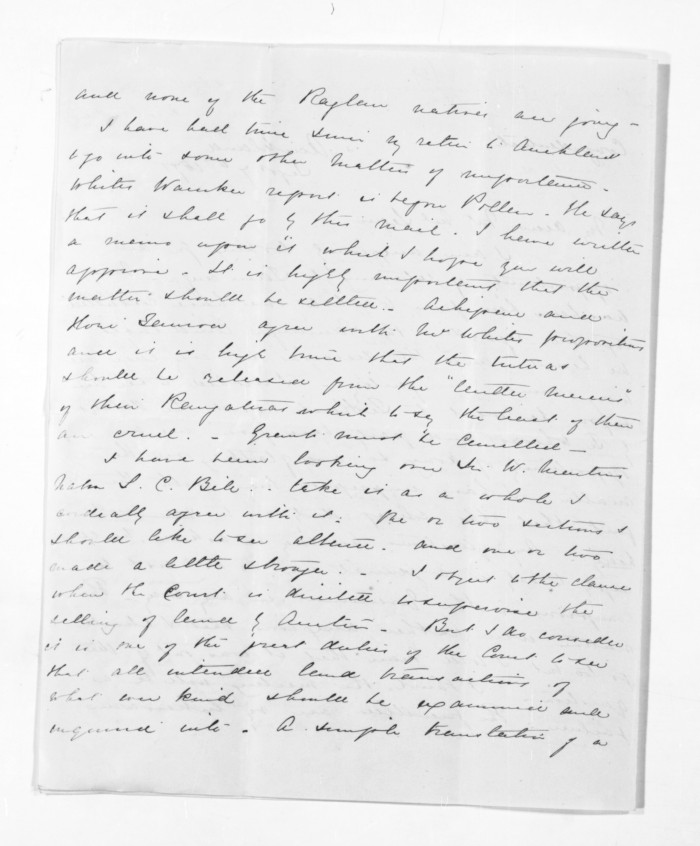 and none of the Raglan natives are going -
I have had time since my return to Auckland
to go into some other matters of importance -
Whites report is before Pollen. He says
that it shall go by this mail. I have written
a memo upon it which I hope you will
approve - It is highly important that the
matter should be settled - and
Hori agree with Mr Whites propositions
and it is high time that the tutuas
should be released from the "tender mercies"
of their Rangatiras which to say the least of them
are cruel. - Grants must be cancelled -
I have been looking over Sir W. Martins
L. C. Bill. take it as a whole I
cordially agree with it. One or two sections I
should like to see altered. and one or two
made a little stronger. - I object to the clause
when the Court is directed to supervise the
selling of land by Auction - But I do consider
it is one of the great duties of the Court to see
that all intended land transactions of
what ever kind should be examined and
inquired into - A simple translation of a